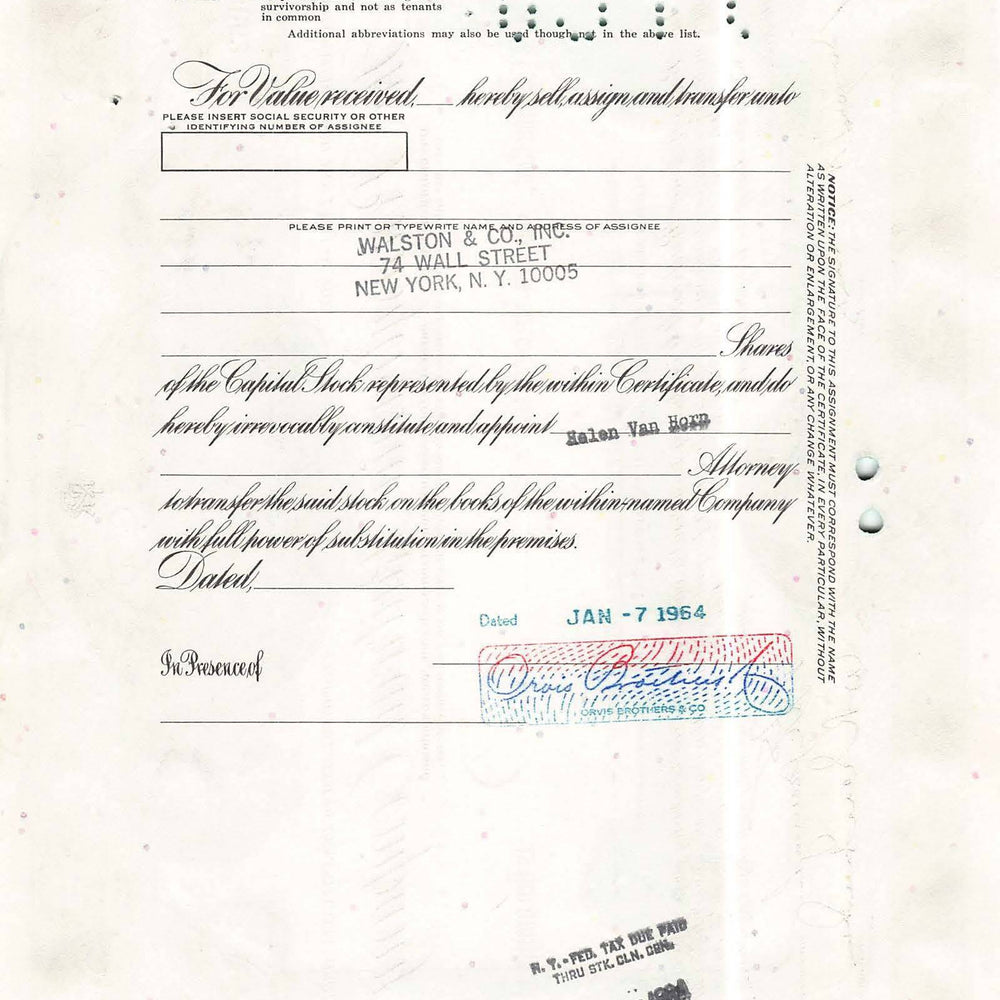 survivorship and not as tenants
in common
Additional abbreviations may also be used though not in the above list.
For Value received, hereby sell, assign and transfer unto
PLEASE INSERT SOCIAL SECURITY OR OTHER
IDENTIFYING NUMBER OF ASSIGNEE
PLEASE PRINT OR TYPEWRITE NAME AND ADDRESS OF ASSIGNEE
WALSTON & CO., INC.
74 WALL STREET
NEW YORK, N. Y. 10005
Shares
of the Capital Stock represented by the within Certificate, and do
hereby irrevocably constitute and appoint Helen Van Horn
Attorney
to transfer the said stock on the books of the within-named Company
with full power of substitution in the premises.
Dated,
Dated JAN -7 1964
In Presence of
Orvis Brothers & Co
ORVIS BROTHERS & CO
N. Y. - FED. TAX DUE PAID
THRU STK. CLN. CORP.
NOTICE: THE SIGNATURE TO THIS ASSIGNMENT MUST CORRESPOND WITH THE NAME
AS WRITTEN UPON THE FACE OF THE CERTIFICATE, IN EVERY PARTICULAR, WITHOUT
ALTERATION OR ENLARGEMENT, OR ANY CHANGE WHATEVER.